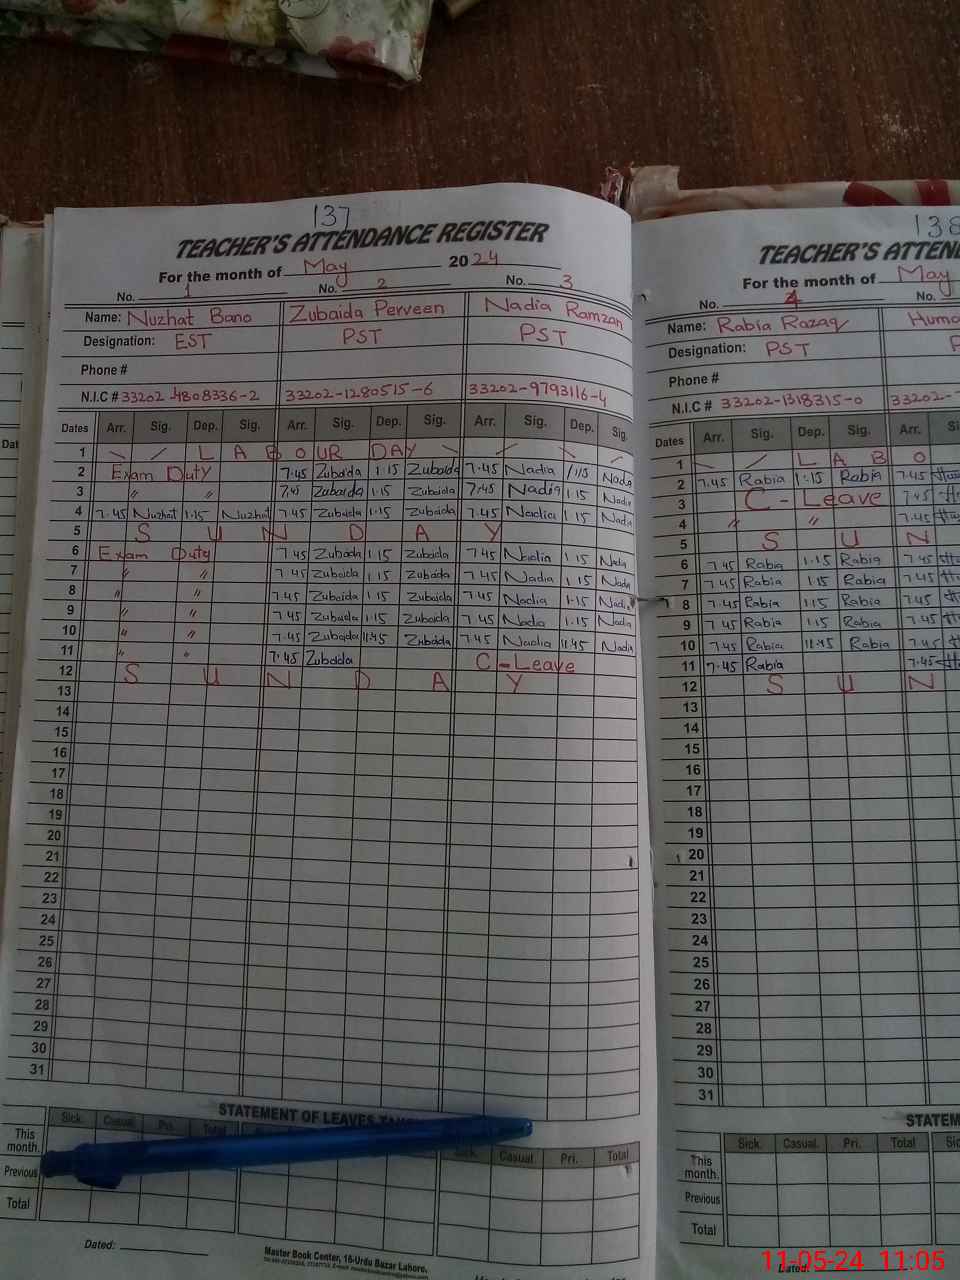 137
TEACHER'S ATTENDANCE REGISTER
For the month of May 2024
No. 1 No. 2 No. 3
Name: Nuzhat Bano Zubaida Perveen Nadia Ramzan
Designation: EST PST PST
Phone #
N.I.C # 33202-4808336-2 33202-1280515-6 33202-9793116-4
Dates Arr. Sig. Dep. Sig. Arr. Sig. Dep. Sig. Arr. Sig. Dep. Sig.
1 LABOUR DAY
2 Exam Duty 7.45 Zubaida 1.15 Zubaida 7.45 Nadia 1.15 Nadia
3 " " 7.45 Zubaida 1.15 Zubaida 7.45 Nadia 1.15 Nadia
4 7.45 Nuzhat 1.15 Nuzhat 7.45 Zubaida 1.15 Zubaida 7.45 Nadia 1.15 Nadia
5 SUNDAY
6 Exam Duty 7.45 Zubaida 1.15 Zubaida 7.45 Nadia 1.15 Nadia
7 " " 7.45 Zubaida 1.15 Zubaida 7.45 Nadia 1.15 Nadia
8 " " 7.45 Zubaida 1.15 Zubaida 7.45 Nadia 1.15 Nadia
9 " " 7.45 Zubaida 1.15 Zubaida 7.45 Nadia 1.15 Nadia
10 " " 7.45 Zubaida 11.45 Zubaida 7.45 Nadia 11.45 Nadia
11 " " 7.45 Zubaida C-Leave
12 SUNDAY
13
14
15
16
17
18
19
20
21
22
23
24
25
26
27
28
29
30
31
STATEMENT OF LEAVES
Sick. Casual Pri. Total Sick. Casual. Pri. Total
This month.
Previous
Total
Dated:
Master Book Center, 16-Urdu Bazar Lahore.
138
TEACHER'S ATTEN
For the month of May
No. 4 No.
Name: Rabia Razaq Huma
Designation: PST P
Phone #
N.I.C # 33202-1318315-0 33202-
Dates Arr. Sig. Dep. Sig. Arr. Si
1 LABO
2 7.45 Rabia 1:15 Rabia 7.45
3 C-Leave 7.45
4 " " 7.45
5 SUN
6 7.45 Rabia 1.15 Rabia 7.45
7 7.45 Rabia 1.15 Rabia 7.45
8 7.45 Rabia 1.15 Rabia 7.45
9 7.45 Rabia 1.15 Rabia 7.45
10 7.45 Rabia 11.45 Rabia 7.45
11 7.45 Rabia 7.45
12 SUN
13
14
15
16
17
18
19
20
21
22
23
24
25
26
27
28
29
30
31
STATEM
Sick. Casual. Pri. Total Sic
This month.
Previous
Total
Dated:
11-05-24 11:05